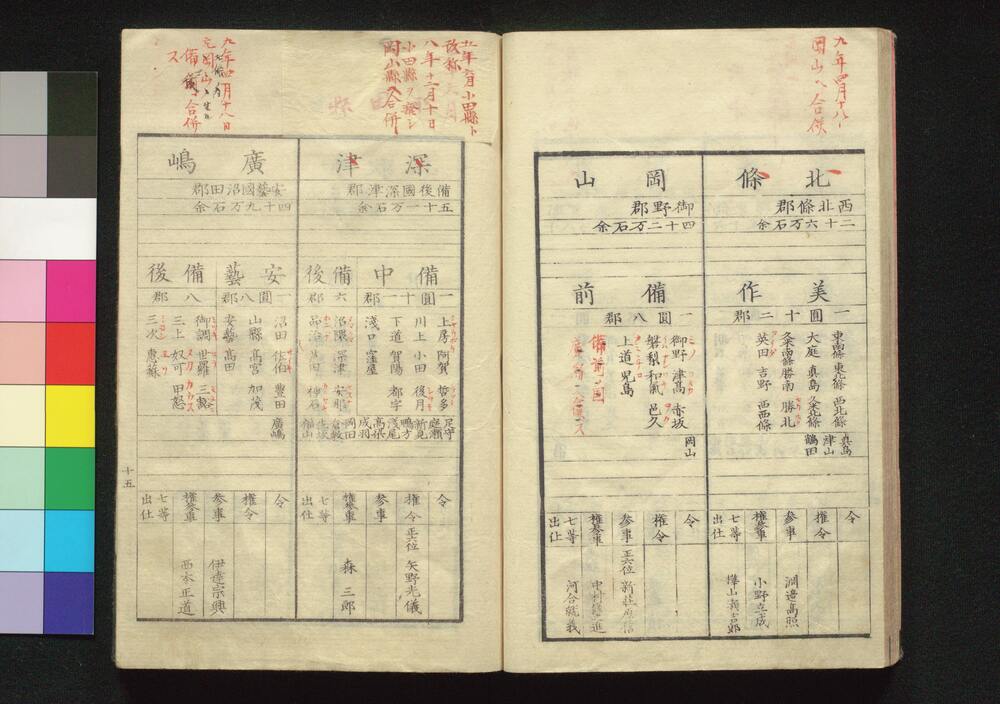 九年四月十八
岡山ヘ合併
北條
西北條郡
二十六万石余
美作
一圓十二郡
東南條 東北條 西北條
大庭 真島
勝南 勝北
英田 吉野 西西條
真島
津山
鶴田
令
権令
参事
渕邉高照
権参事
小野立成
七等
出仕
岡山
御野郡
四十二万石余
備前
一圓八郡
御野 津高 赤坂
磐梨 和氣 邑久
上道 児島
岡山
令
権令
参事
正六位 新荘厚信
権参事
七等
出仕
河合就義
五年六月小田縣ト
改称
八年十二月十日
小田縣ヲ廢シ
岡山縣ヘ合併
深津
備後國深津郡
五十一万石余
備中
一圓十一郡
上房 阿賀 哲多
川上 小田 後月
下道 賀陽 都宇
浅口 窪屋
備後
六郡
沼隈 深津 安那
品治 芦田 神石
足守
庭瀬
新見
鴨方
浅尾
高梁
成羽
岡田
倉敷
生坂
福山
令
権令
正六位 矢野光儀
参事
権参事
森三郎
七等
出仕
九年四月十八日
廣嶋
安藝國沼田郡
四十九万石余
安藝
一圓八郡
沼田 佐伯 豊田
山縣 高宮 加茂
安藝 高田
備後
八郡
御調 世羅 三谿
三上 奴可 甲怒
三次 恵蘇
廣嶋
令
権令
参事
伊達宗興
権参事
西本正道
七等
出仕
十五